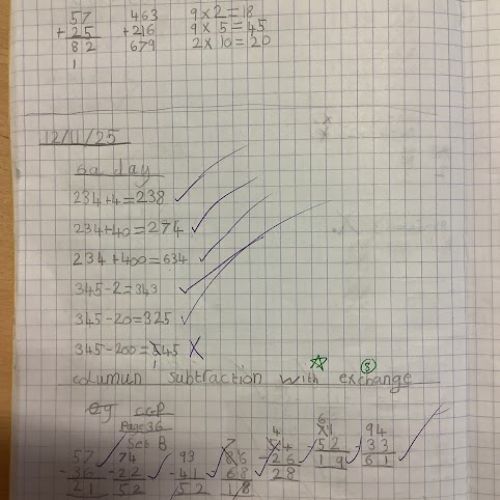 57 463 9×2=18
+25 +216 9×5=45
82 679 2×10=20
1
12/11/25
6a day
234+4=238
234+40=274
234+400=634
345-2=343
345-20=325
345-200=545
1
columun subtraction with exchange
eg CGP
Page 36
Set B
57 74 93 86 54 71 94
-36 -22 -41 68 -26 -52 33
21 52 52 18 28 19 61